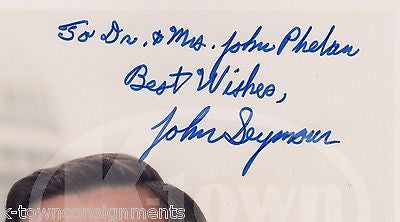 To Dr. & Mrs. John Phelan
Best Wishes,
John Seymour
K-town
k-townconsignments